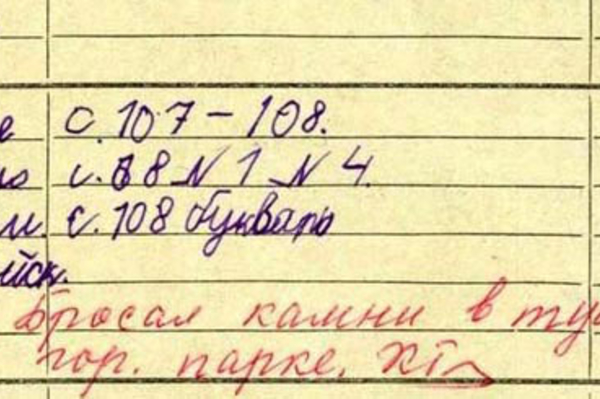 е с. 107 - 108.
ю с. 68 N 1 N 4.
м. с. 108 букварь
ийск.
Бросал камни в ту
гор. парке.